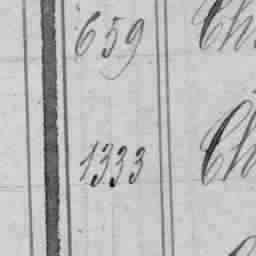 659 Ch
1333 Ch